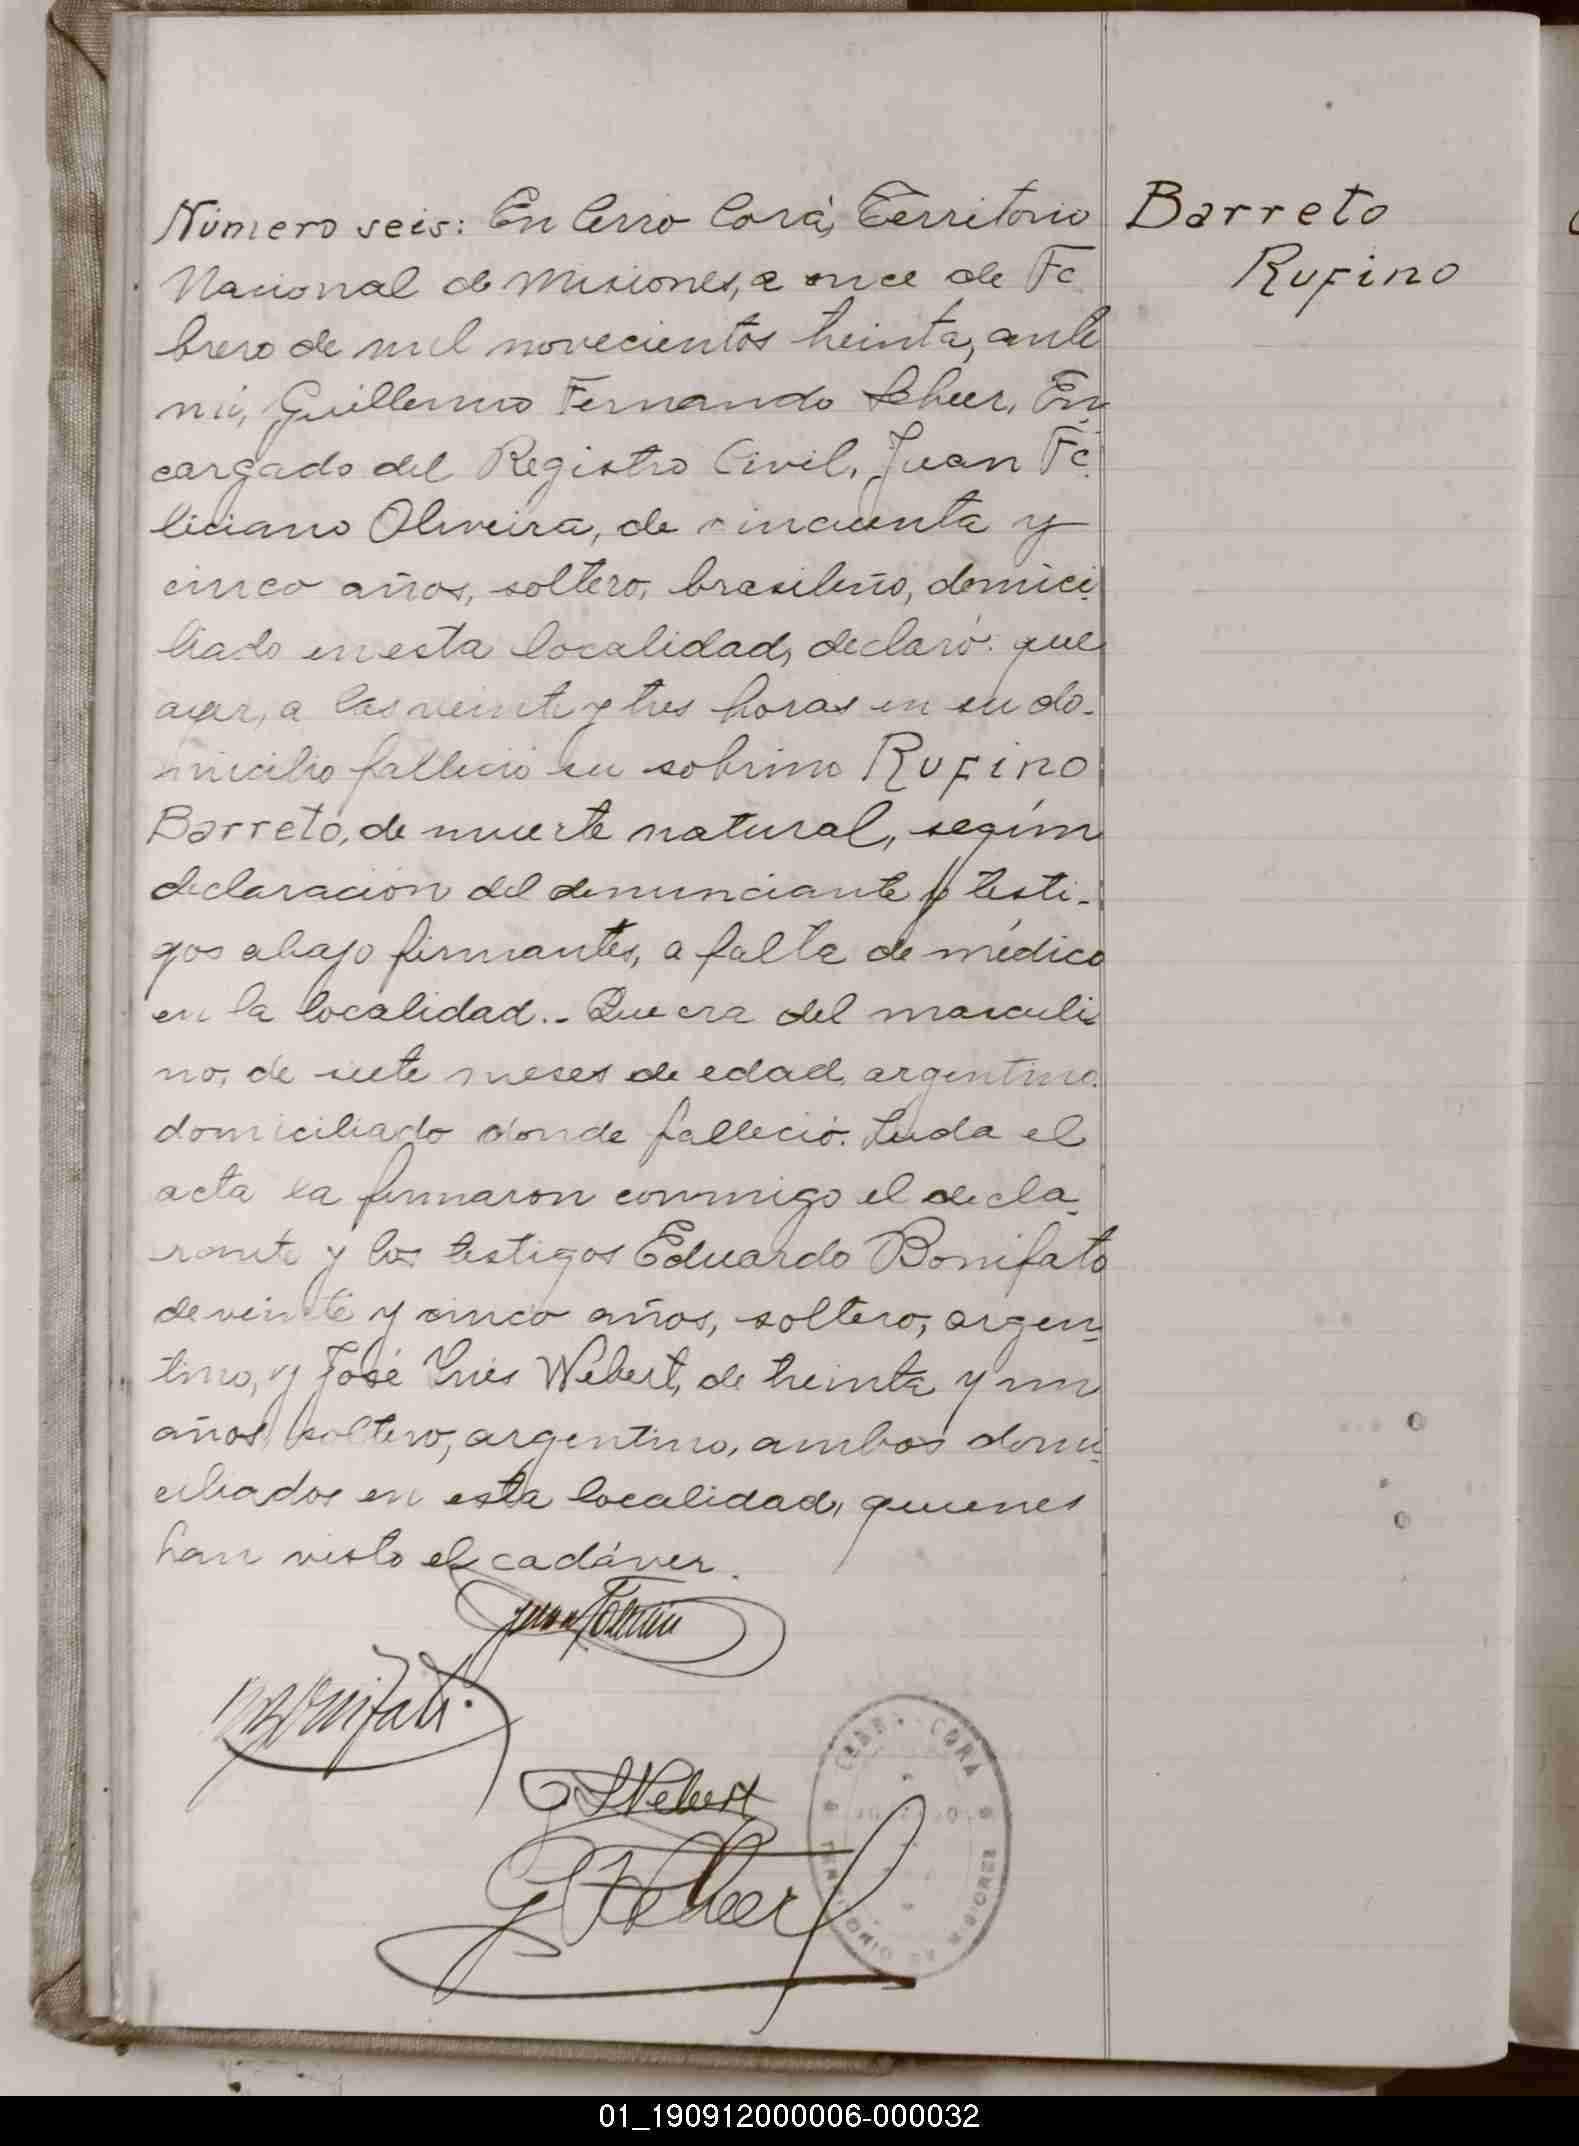 Número seis: En Cerro Corá, Territorio
Nacional de Misiones, a once de Fe
brero de mil novecientos treinta, ante
mi, Guillermo Fernando Scheer, En
cargado del Registro Civil, Juan Fe
liciano Oliveira, de cincuenta y
cinco años, soltero, brasileño, domici
liado en esta localidad, declaró: que
ayer, a las veinte y tres horas en su do-
micilio falleció su sobrino Rufino
Barreto, de muerte natural, según
declaración del denunciante y testi-
gos abajo firmantes, a falta de médico
en la localidad.- Que era del masculi
no, de siete meses de edad, argentino
domiciliado donde falleció. Leida el
acta la firmaron conmigo el decla-
rante y los testigos Eduardo Bonifato
de veinte y cinco años, soltero, argen-
tino, y José Luis Webert, de treinta y un
años, soltero, argentino, ambos domi-
ciliados en esta localidad, quienes
han visto el cadáver.
Barreto
Rufino
J. L. Webert
G. F. Scheer
CERRO CORA
01_190912000006-000032